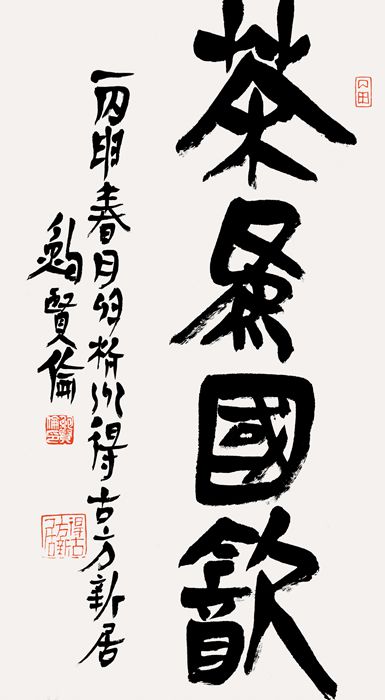 茶為國飲
丙申春月於杭州得古方新居
鮑賢倫